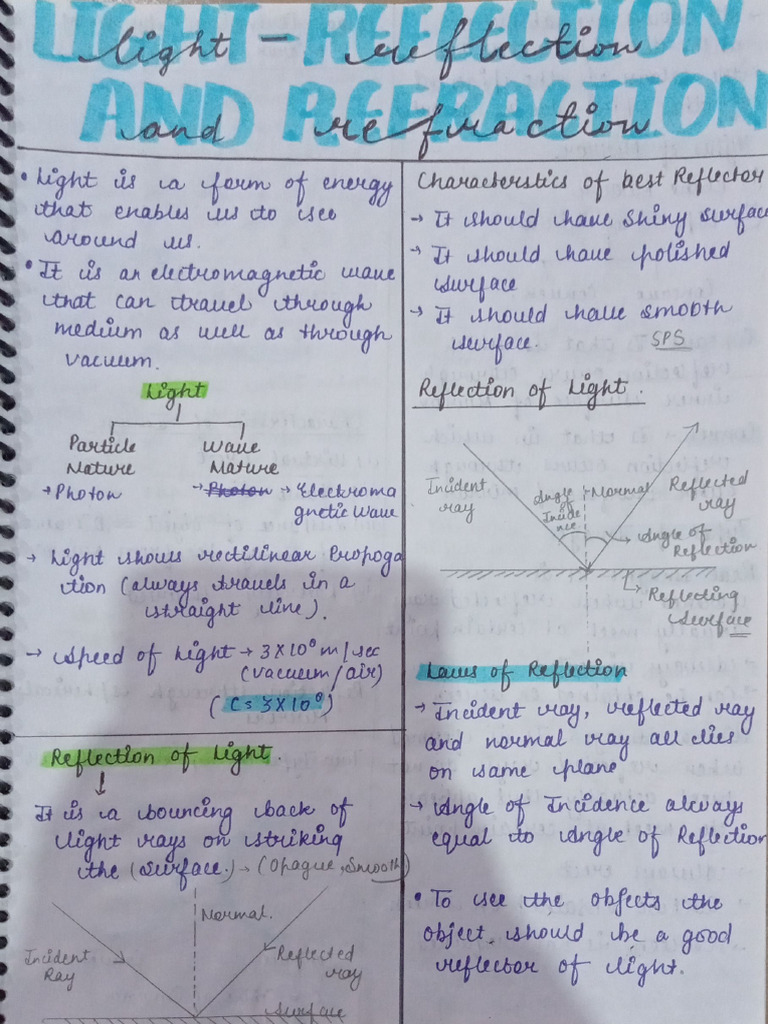 LIGHT-REFLECTION
AND REFRACTION
light - reflection
and refraction
• Light is a form of energy
that enables us to see
around us.
• It is an electromagnetic wave
that can travel through
medium as well as through
vacuum.
Light
Particle
Nature
→ Photon
Wave
Nature
→ Photon → Electroma
gnetic wave
→ Light shows rectilinear Propoga
tion (always travels in a
straight line).
→ Speed of Light → 3X10⁸ m/sec
(vacuum/air)
(C = 3X10⁸)
Reflection of Light.
It is a bouncing back of
light rays on striking
the (surface.) → (Opague, Smooth)
Normal.
Incident
Ray
Reflected
ray
Surface
Characterstics of best Reflector
→ It should have shiny surface
→ It should have polished
surface
→ It should have smooth
surface. SPS
Reflection of Light.
Incident
ray
Angle
of
Incide
nce
Normal
Reflected
ray
Angle of
Reflection
Reflecting
surface
Laws of Reflection
→ Incident ray, reflected ray
and normal ray all lies
on same plane
→ Angle of Incidence always
equal to Angle of Reflection
• To see the objects the
object should be a good
reflector of light.